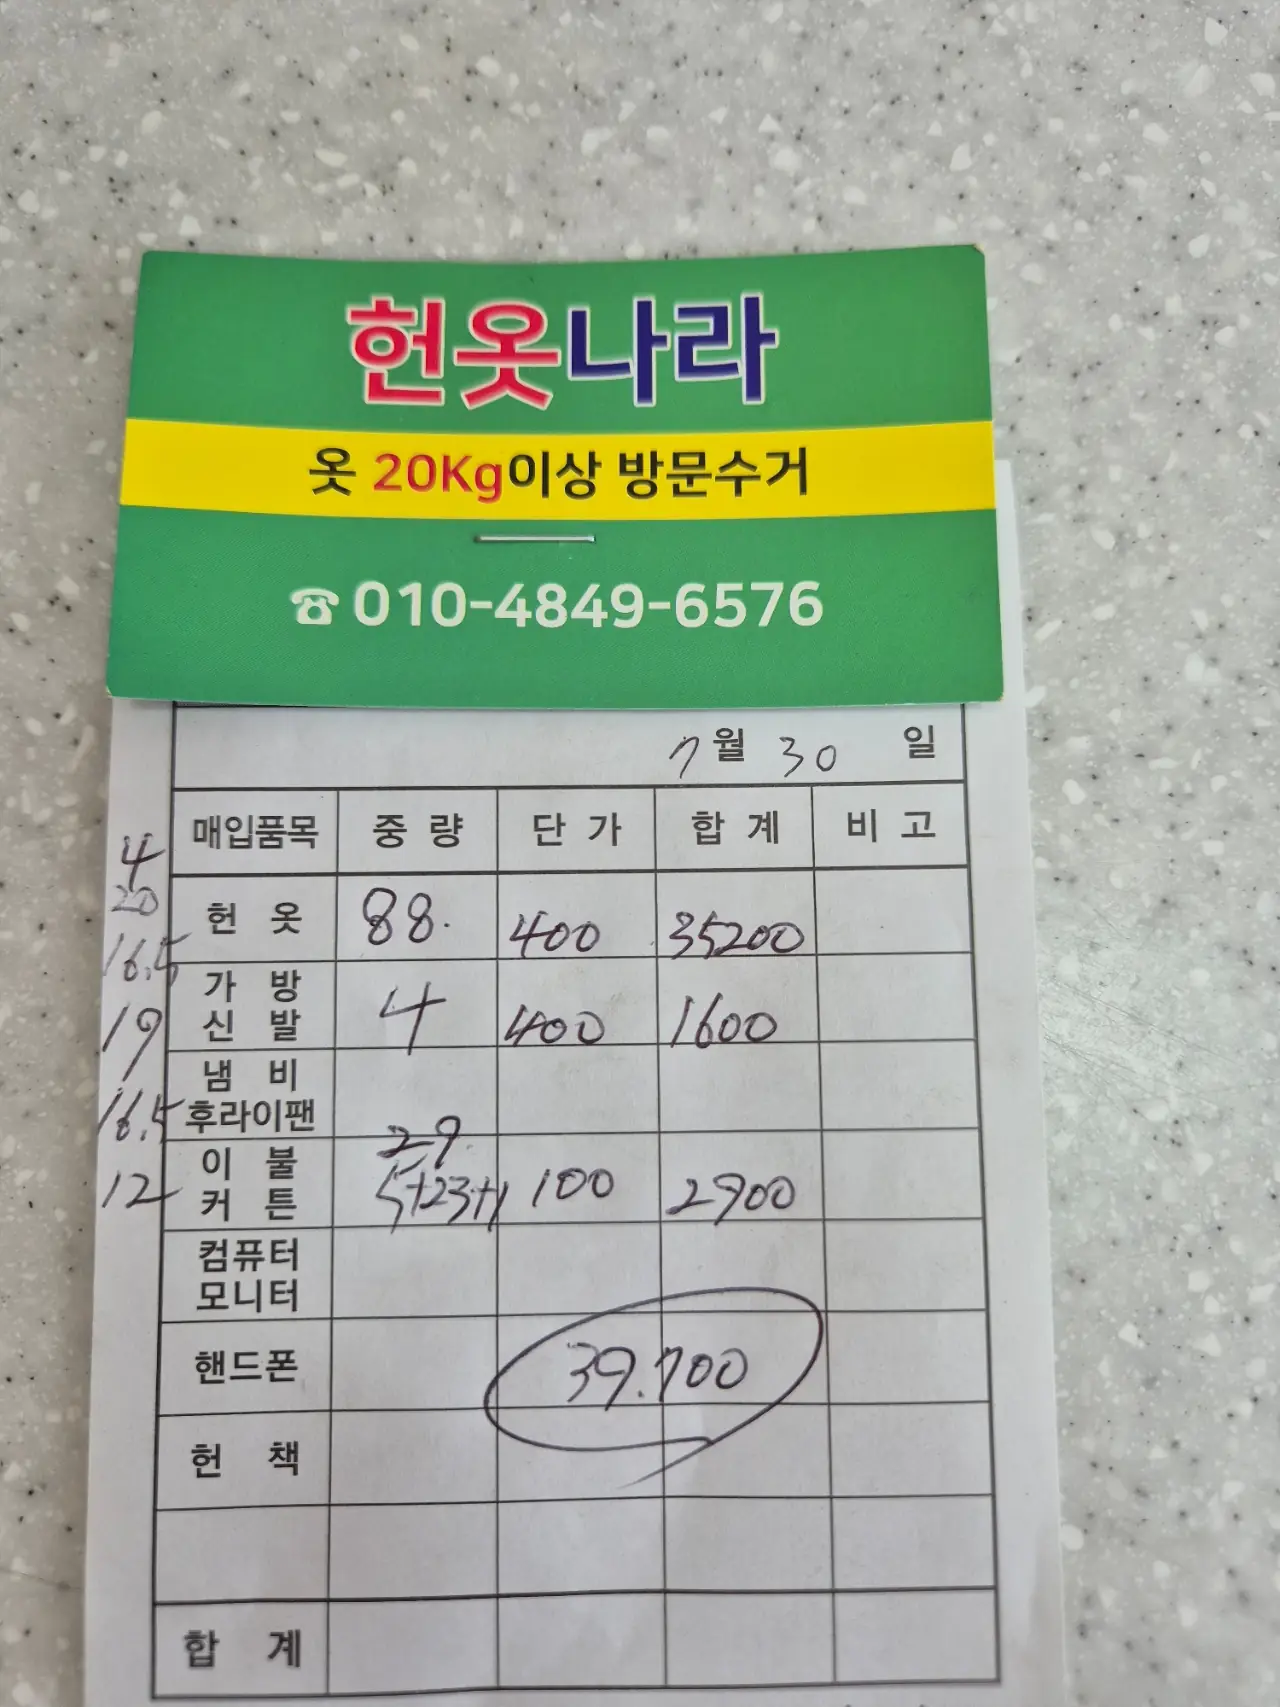 헌옷나라
옷 20Kg이상 방문수거
☎010-4849-6576
7월 30 일
매입품목 중 량 단 가 합 계 비 고
4
20
16.5
19
16.5
12
헌 옷 88. 400 35200
가 방
신 발 4 400 1600
냄 비
후라이팬
29
이 불
커 튼 5+23+1 100 2900
컴퓨터
모니터
핸드폰 39.700
헌 책
합 계